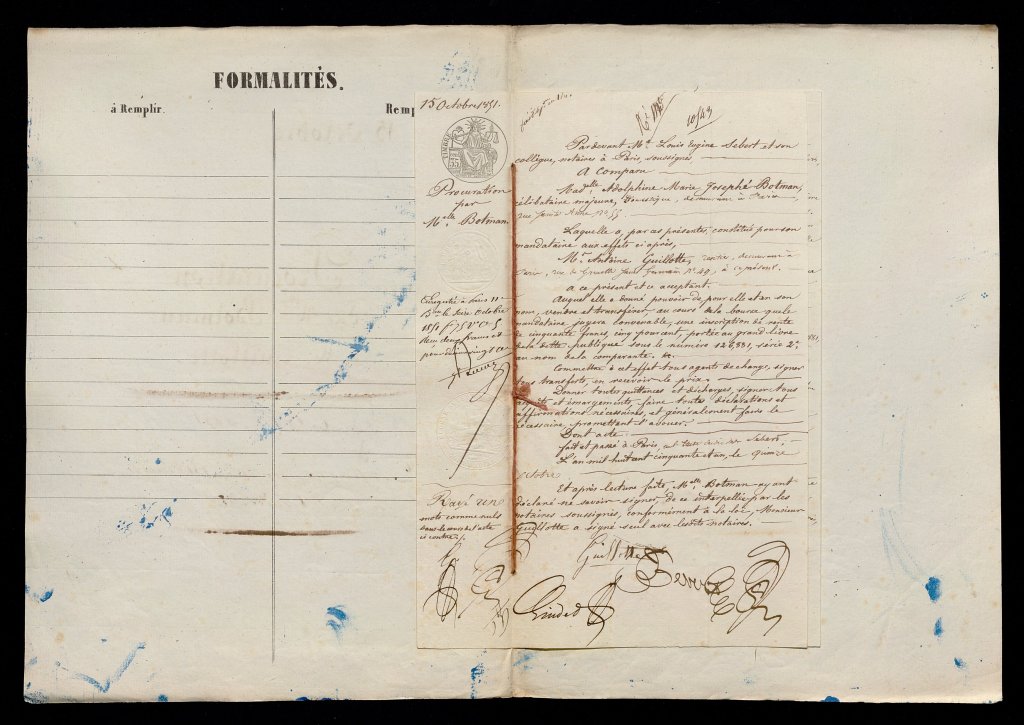 FORMALITÉS.
à Remplir.
Remp
15 Octobre 1851.
TIMBRE
Procuration
par
Melle Botman
Enregistré à Paris 11e
deux francs et
Rayé un
mots comme nuls
dans le cours de l'acte
ci contre
10543
Pardevant Me Louis Eugène Sebert et son
collègue, notaires à Paris, soussignés
A Comparu
Madelle Adolphine Marie Josephe Botman,
célibataire majeure, domestique, demeurant à Paris
rue Sainte Anne no 55.
Laquelle a, par ces présentes, constitué pour son
mandataire aux effets ci après,
Mr Antoine Guillotte, rentier, demeurant à
Paris, rue de Grenelle Saint Germain no 49, à ce présent.
A ce présent et ce acceptant.
Auquel elle a donné pouvoir de pour elle et en son
nom, vendre et transférer au cours de la bourse que le
mandataire jugera convenable, une inscription de rente
de cinquante francs, cinq pour cent, portée au grand livre
de la dette publique sous le numéro 126,881, série 2e
au nom de la comparante.
Commettre à cet effet tous agents de change, signer
tous transferts, en recevoir le prix.
Donner toutes quittances et décharges, signer tous
et émargements, faire toutes déclarations et
affirmations nécessaires, et généralement faire le
nécessaire, promettant l'avouer.
Dont acte.
fait et passé à Paris, en l'étude dudit Me Sebert.
L'an mil huit cent cinquante et un, le quinze
octobre
Et après lecture faite, Melle Botman ayant
déclaré ne savoir signer, de ce interpellée par les
notaires soussignés, conformément à la loi, Monsieur
Guillotte a signé seul avec lesdits notaires.
Guillotte